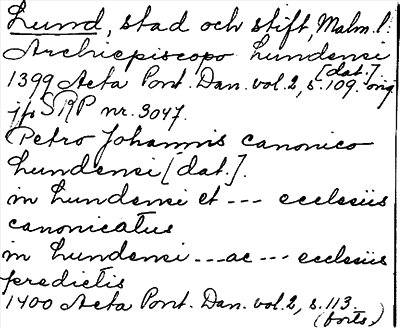 Lund, stad och stift, Malm. l.
Archiepiscopo Lundensi
[dat.]
1399 Acta Pont. Dan. vol. 2, s. 109. orig
jfr SRP nr. 3047.
Petro Johannis canonico
Lundensi [dat.].
in Lundensi et --- ecclesiis
canonicatus
in Lundensi --- ac --- ecclesiis
predictis
1400 Acta Pont. Dan. vol. 2, s. 113.
(forts.)